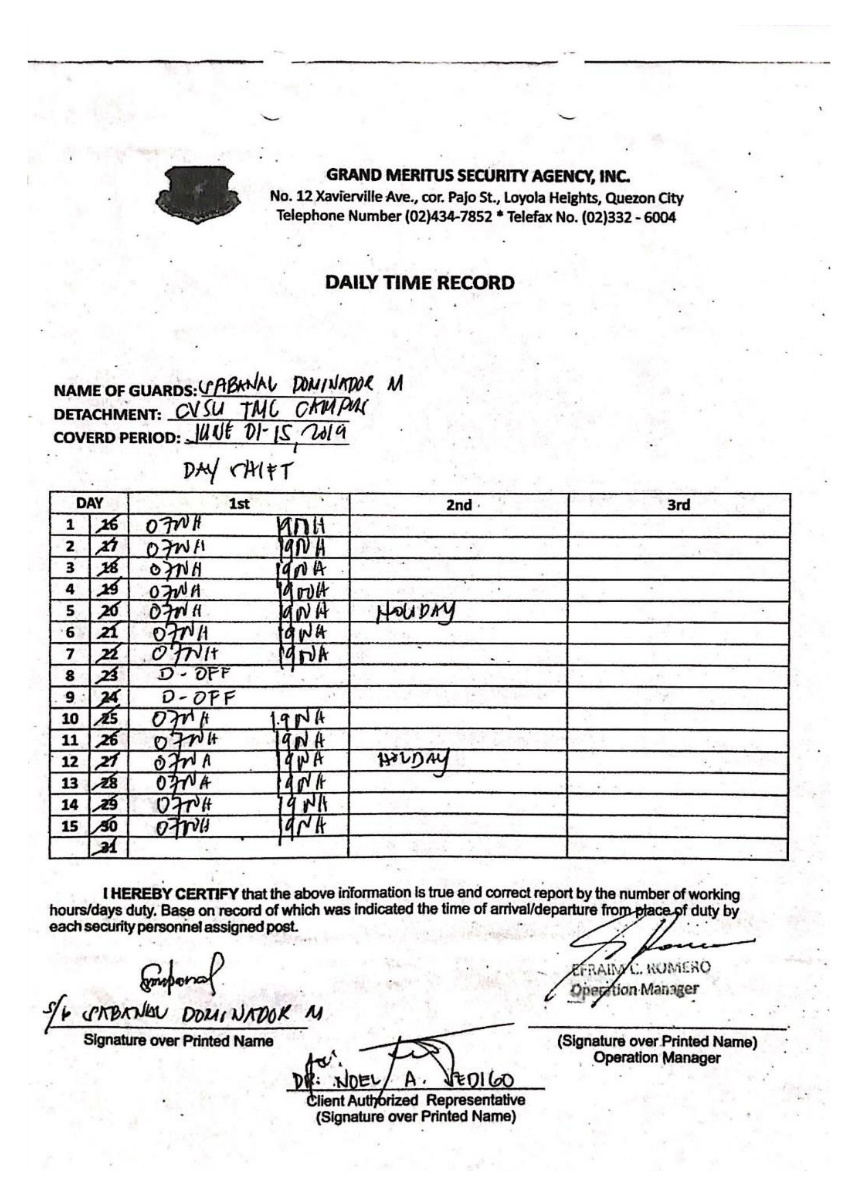 GRAND MERITUS SECURITY AGENCY, INC.
No. 12 Xavierville Ave., cor. Pajo St., Loyola Heights, Quezon City
Telephone Number (02)434-7852 * Telefax No. (02)332 - 6004
DAILY TIME RECORD
NAME OF GUARDS: SABANAL DOMINADOR M
DETACHMENT: CVSU TMC CAMPUS
COVERD PERIOD: JUNE 01-15, 2019
DAY SHIFT
DAY 1st 2nd 3rd
1 16 07NH 19NH
2 17 07NH 19NH
3 18 07NH 19NH
4 19 07NH 19NH
5 20 07NH 19NH HOLIDAY
6 21 07NH 19NH
7 22 07NH 19NH
8 23 D-OFF
9 24 D-OFF
10 25 07NH 19NH
11 26 07NH 19NH
12 27 07NH 19NH HOLDAY
13 28 07NH 19NH
14 29 07NH 19NH
15 30 07NH 19NH
31
I HEREBY CERTIFY that the above information is true and correct report by the number of working
hours/days duty. Base on record of which was indicated the time of arrival/departure from place of duty by
each security personnel assigned post.
EFRAIM C. ROMERO
Operation Manager
S/G SABANAL DOMINADOR M
Signature over Printed Name
(Signature over Printed Name)
Operation Manager
DR. NOEL A. SEDIGO
Client Authorized Representative
(Signature over Printed Name)